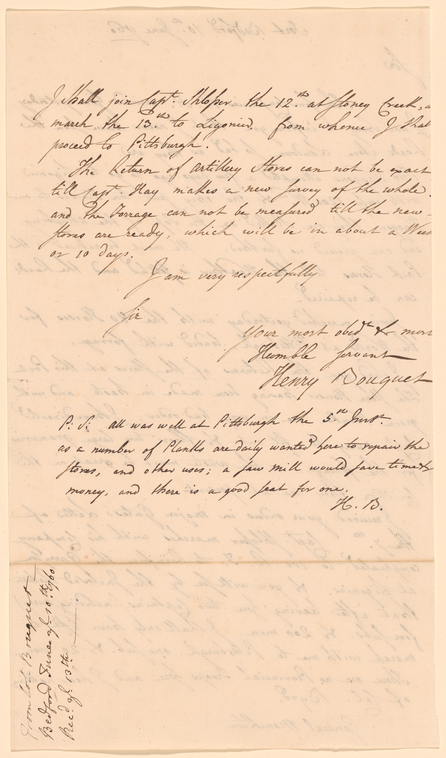 I Shall join Capt. Shloser the 12.th at Stoney Creek, &
march the 13.th to Ligonier from whence I shal
proceed to Pittsburgh.
The Return of artillery Stores can not be exact
till Capt. Hay makes a new Survey of the whole
and The Forrage can not be measured till the new
Stores are ready, which will be in about a Week
or 10 days.
I am very respectfully
Sir
Your most obed.t & most
Humble Servant
Henry Bouquet
P: S: all was well at Pittsburgh the 5.th Inst.
as a number of Planks are daily wanted here to repair the
Stores, and other uses; a saw mill would save time &
money, and there is a good seat for one.
H. B.
From Col. Bouquet
Bedford June ye 10.th 1760
Rec.d ye 13.th